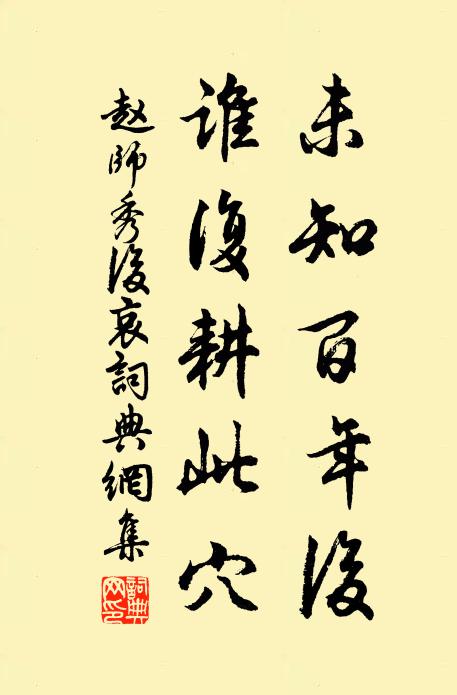 未知百年後
誰復耕此穴
趙師秀後哀詞典網集
詞典網印